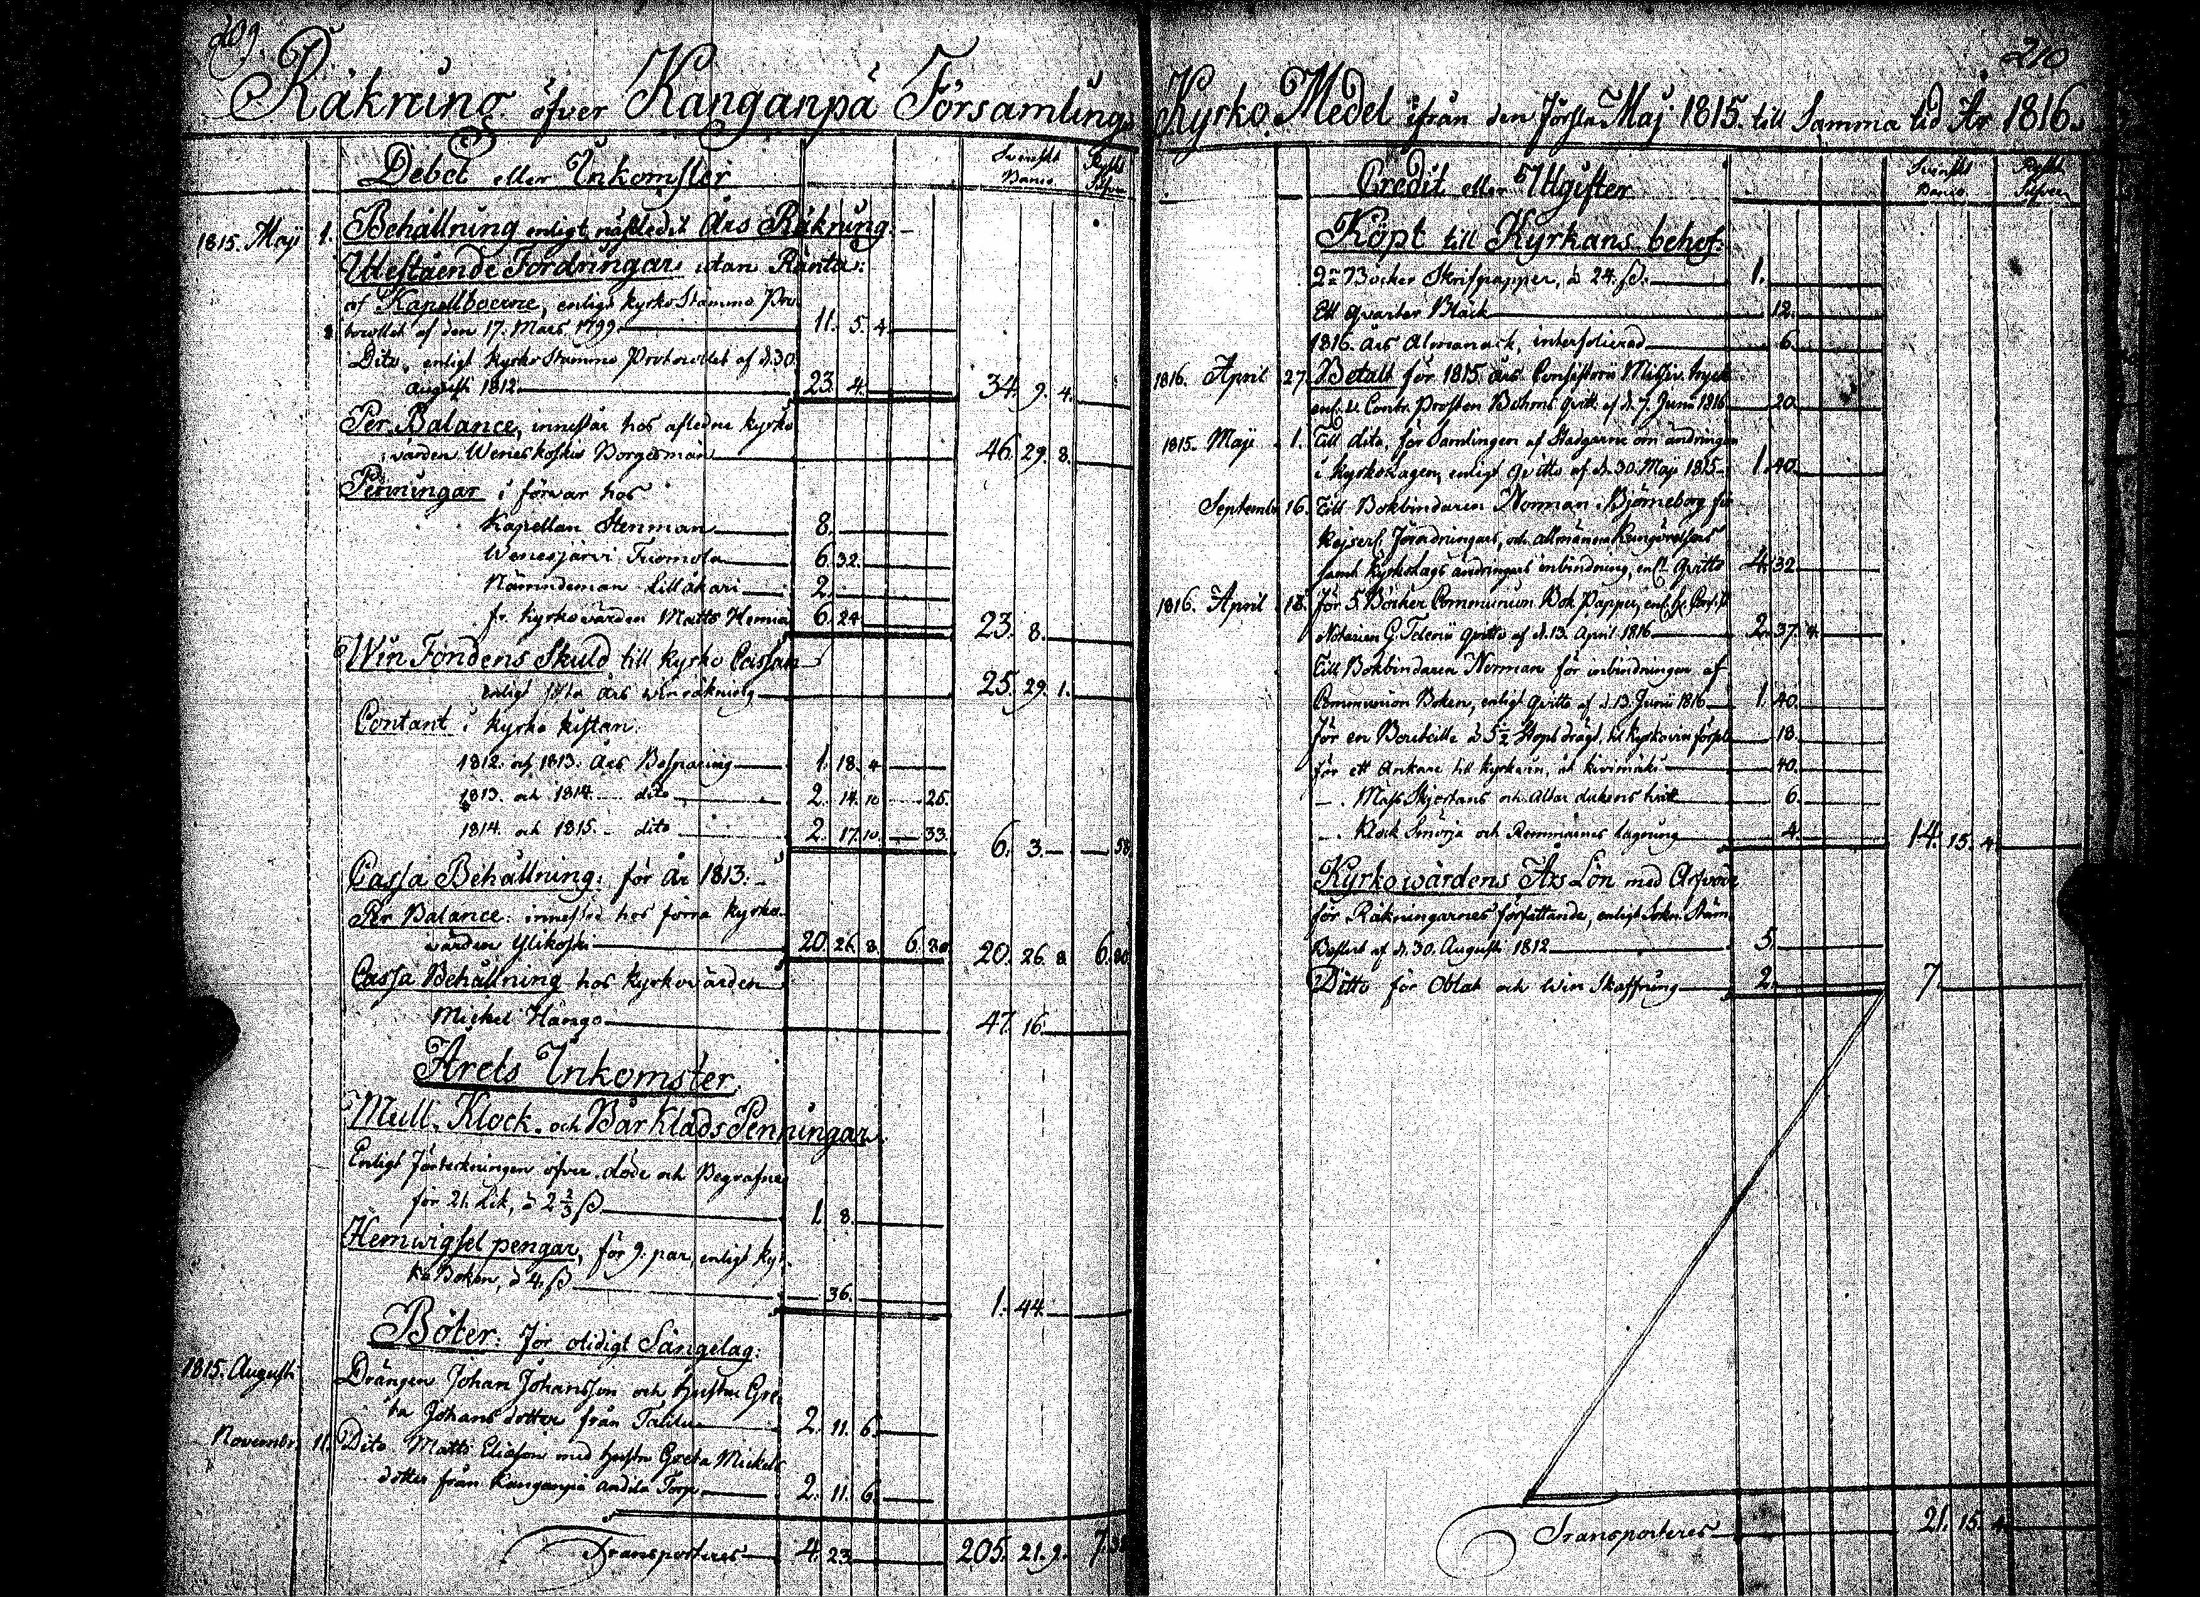 209.
Räkning öfver Kanganpä Församlings
Debet eller Inkomster
Svenskt Banco
Ryskt Silfver
1815. Maji 1. Behållning enligt nästledit Års Räkning.
Utestående Fordringar utan Ränta:
af Kapellboerne, enligt Kyrko Stämmo Pro-
tocollet af den 17. Mars 1799 11. 5. 4.
Dito, enligt Kyrko Stämmo Protocollet af d. 30
Augusti 1812 23. 4. 34. 9. 4.
Per Balance, innestår hos afledne Kyrko
värden Weneskoskis Borgesmän 46. 29. 8.
Penningar i förvar hos
Kapellan Stenman 8.
Wenesjärvi Tuomola 6. 32.
Nämndeman Lillåkari 2.
fr. Kyrkovärden Matts Hemiä 6. 24 23. 8.
Win Fondens Skuld till Kyrko Cassan
enligt Års winräkning 25. 29. 1.
Contant i Kyrko kistan:
1812. och 1813. Års Besparing 1. 18. 4
1813. och 1814. dito 2. 14. 10 25.
1814. och 1815. dito 2. 17. 10. 33. 6. 3. 58.
Cassa Behållning: för År 1813.
Per Balance: innestod hos förra Kyrko-
värden Ylikoski 20. 26. 8. 6. 80. 20. 26. 8 6. 80
Cassa Behållning hos Kyrkovärden
Mickel Hango 47. 16.
Årets Inkomster.
Mull, Klock och Bårkläds Penningar.
Enligt Förteckningen öfver döde och Begrafne
för 21. Lik, à 2 2/3 ß 1. 8.
Hemwigsel pengar, för 9. par, enligt Kyr-
ko Boken, à 4. ß 36. 1. 44.
Böter: för otidigt Sängelag:
1815. Augusti Drängen Johan Johansson och hustru Gre-
ta Johans dotter från 2. 11. 6.
Novembr. 11. Dito Matts Eliasson med hustru Greta Mickels
dotter från Kanganpä Andila Torp 2. 11. 6.
Transporteres 4. 23. 205. 21. 9. 7. 38
210
Kyrko Medel ifrån den Första Maj 1815. till Samma tid År 1816.
Credit eller Utgifter
Svenskt Banco
Ryskt Silfver
Köpt till Kyrkans behof:
2ne Böcker Skrifpapper, à 24. ß. 1.
Ett qvarter Bläck 12.
1816. års Almanach, interfolierad 6.
1816. April 27. Betalt för 1815. års Consistorii Missiv. tryck
enl. Contr. Prosten qvitt. af d. 7. Junii 1816 20.
1815. Maji 1. Till dito, för Samlingen af Stadgarne om ändringen
i Kyrko Lagen, enligt qvitto af d. 30. Maji 1815. 1. 40.
Septembr. 16. Till Bokbindaren Norman i Björneborg för
Kejserl. Förordningars, och allmänna Kungörelsers
samt Kyrkolags ändringars inbindning, enl. qvitto 4. 32
1816. April 18. för 5. Böcker Communion Bok Papper, enl. Consist.
Notarien G. qvitto af d. 13. April 1816 2. 37. 4.
Till Bokbindaren Norman för inbindningen af
Communion Boken, enligt qvitto af d. 13. Junii 1816 1. 40.
för en Bouteille à 5 1/2 Stops drägt, til Kyrkovin 18.
för ett Ankare til Kyrkvin, 40.
Mass Skjortans och Altar dukens tvätt 6.
Klock Smörja och Remmarnes lagning 4. 14. 15. 4.
Kyrkowärdens Års Lön med Arfvode
för Räkningarnes författande, enligt Sokn. Stäm.
Beslut af d. 30. Augusti 1812 5.
Ditto för Oblat och Win Skaffning 2. 7.
Transporteres 21. 15. 4.